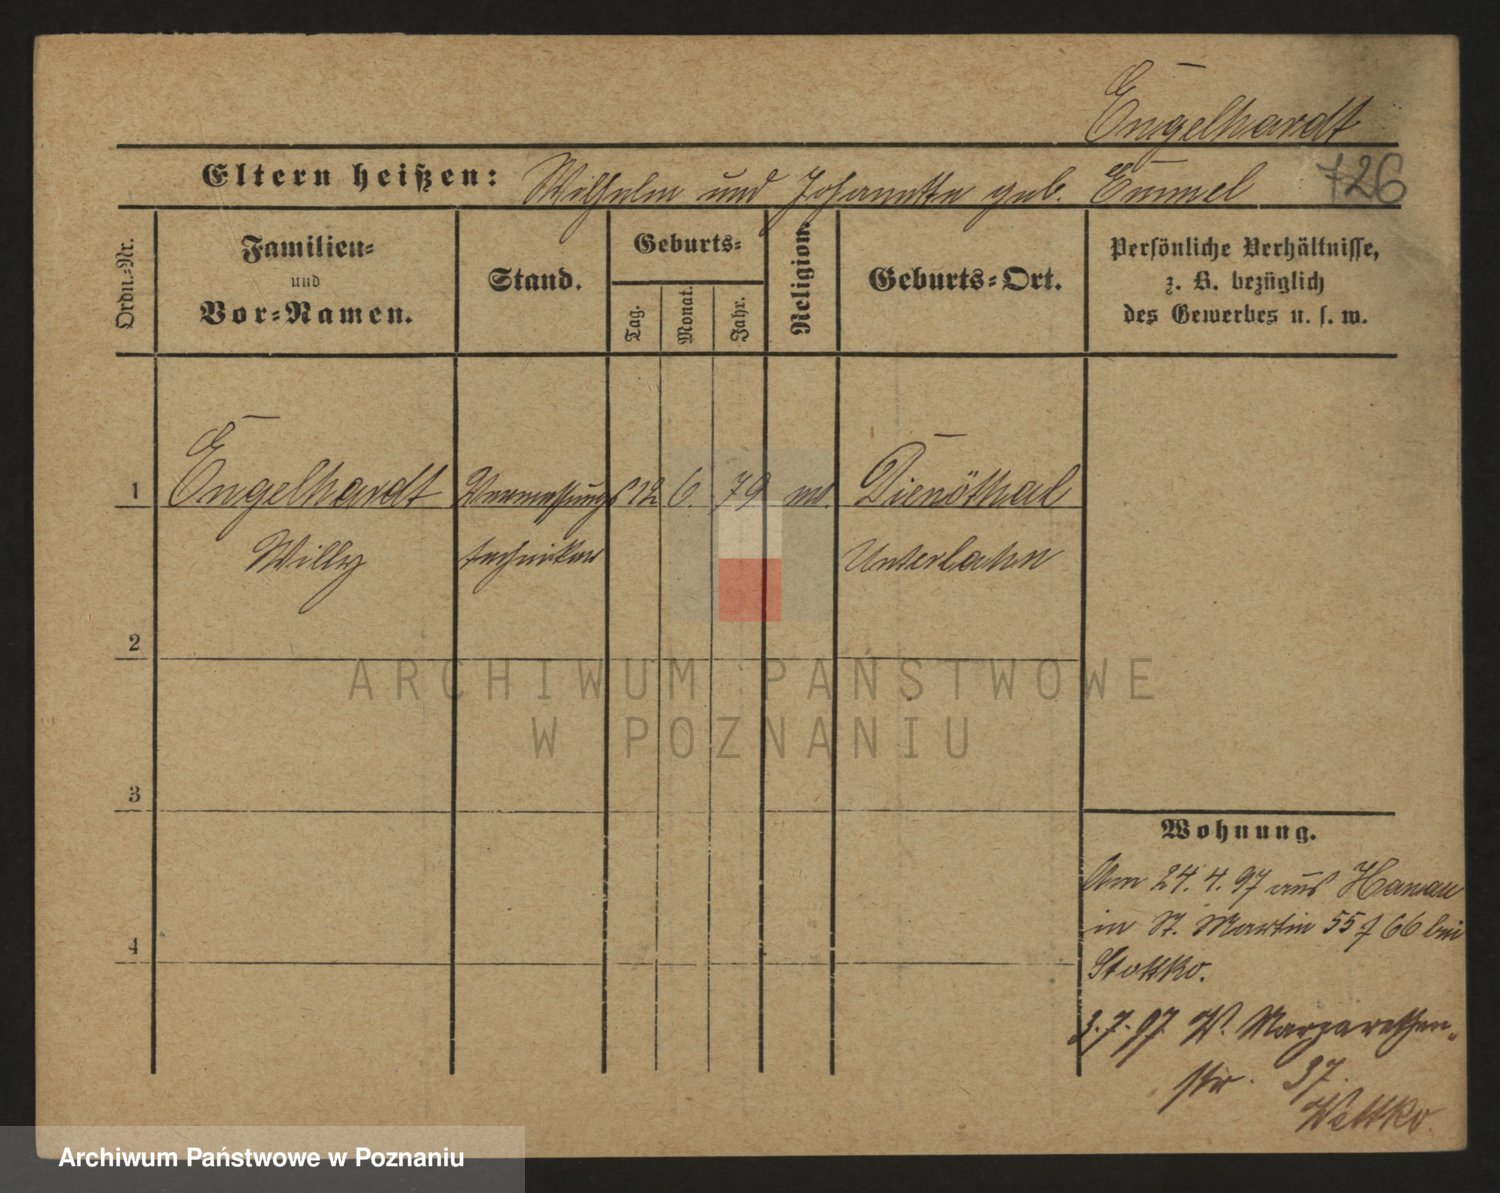 Engelhardt
Eltern heißen: Wilhelm und Johannette geb. Emmel
726
Ordn.-Nr.
Familien-
und
Vor-Namen.
Stand.
Geburts-
Tag.
Monat.
Jahr.
Religion.
Geburts-Ort.
Persönliche Verhältnisse,
z. B. bezüglich
des Gewerbes u. s. w.
1 Engelhardt Vermessungs 12 6. 79 Dienöthal
Willy techniker Unterlahn
2
3
4
ARCHIWUM PAŃSTWOWE
W POZNANIU
Wohnung.
Am 24.4.97 aus Hanau
in St. Martin 55 f 66 bei
3.7.97 W. Margarethen-
str. 37.
Archiwum Państwowe w Poznaniu